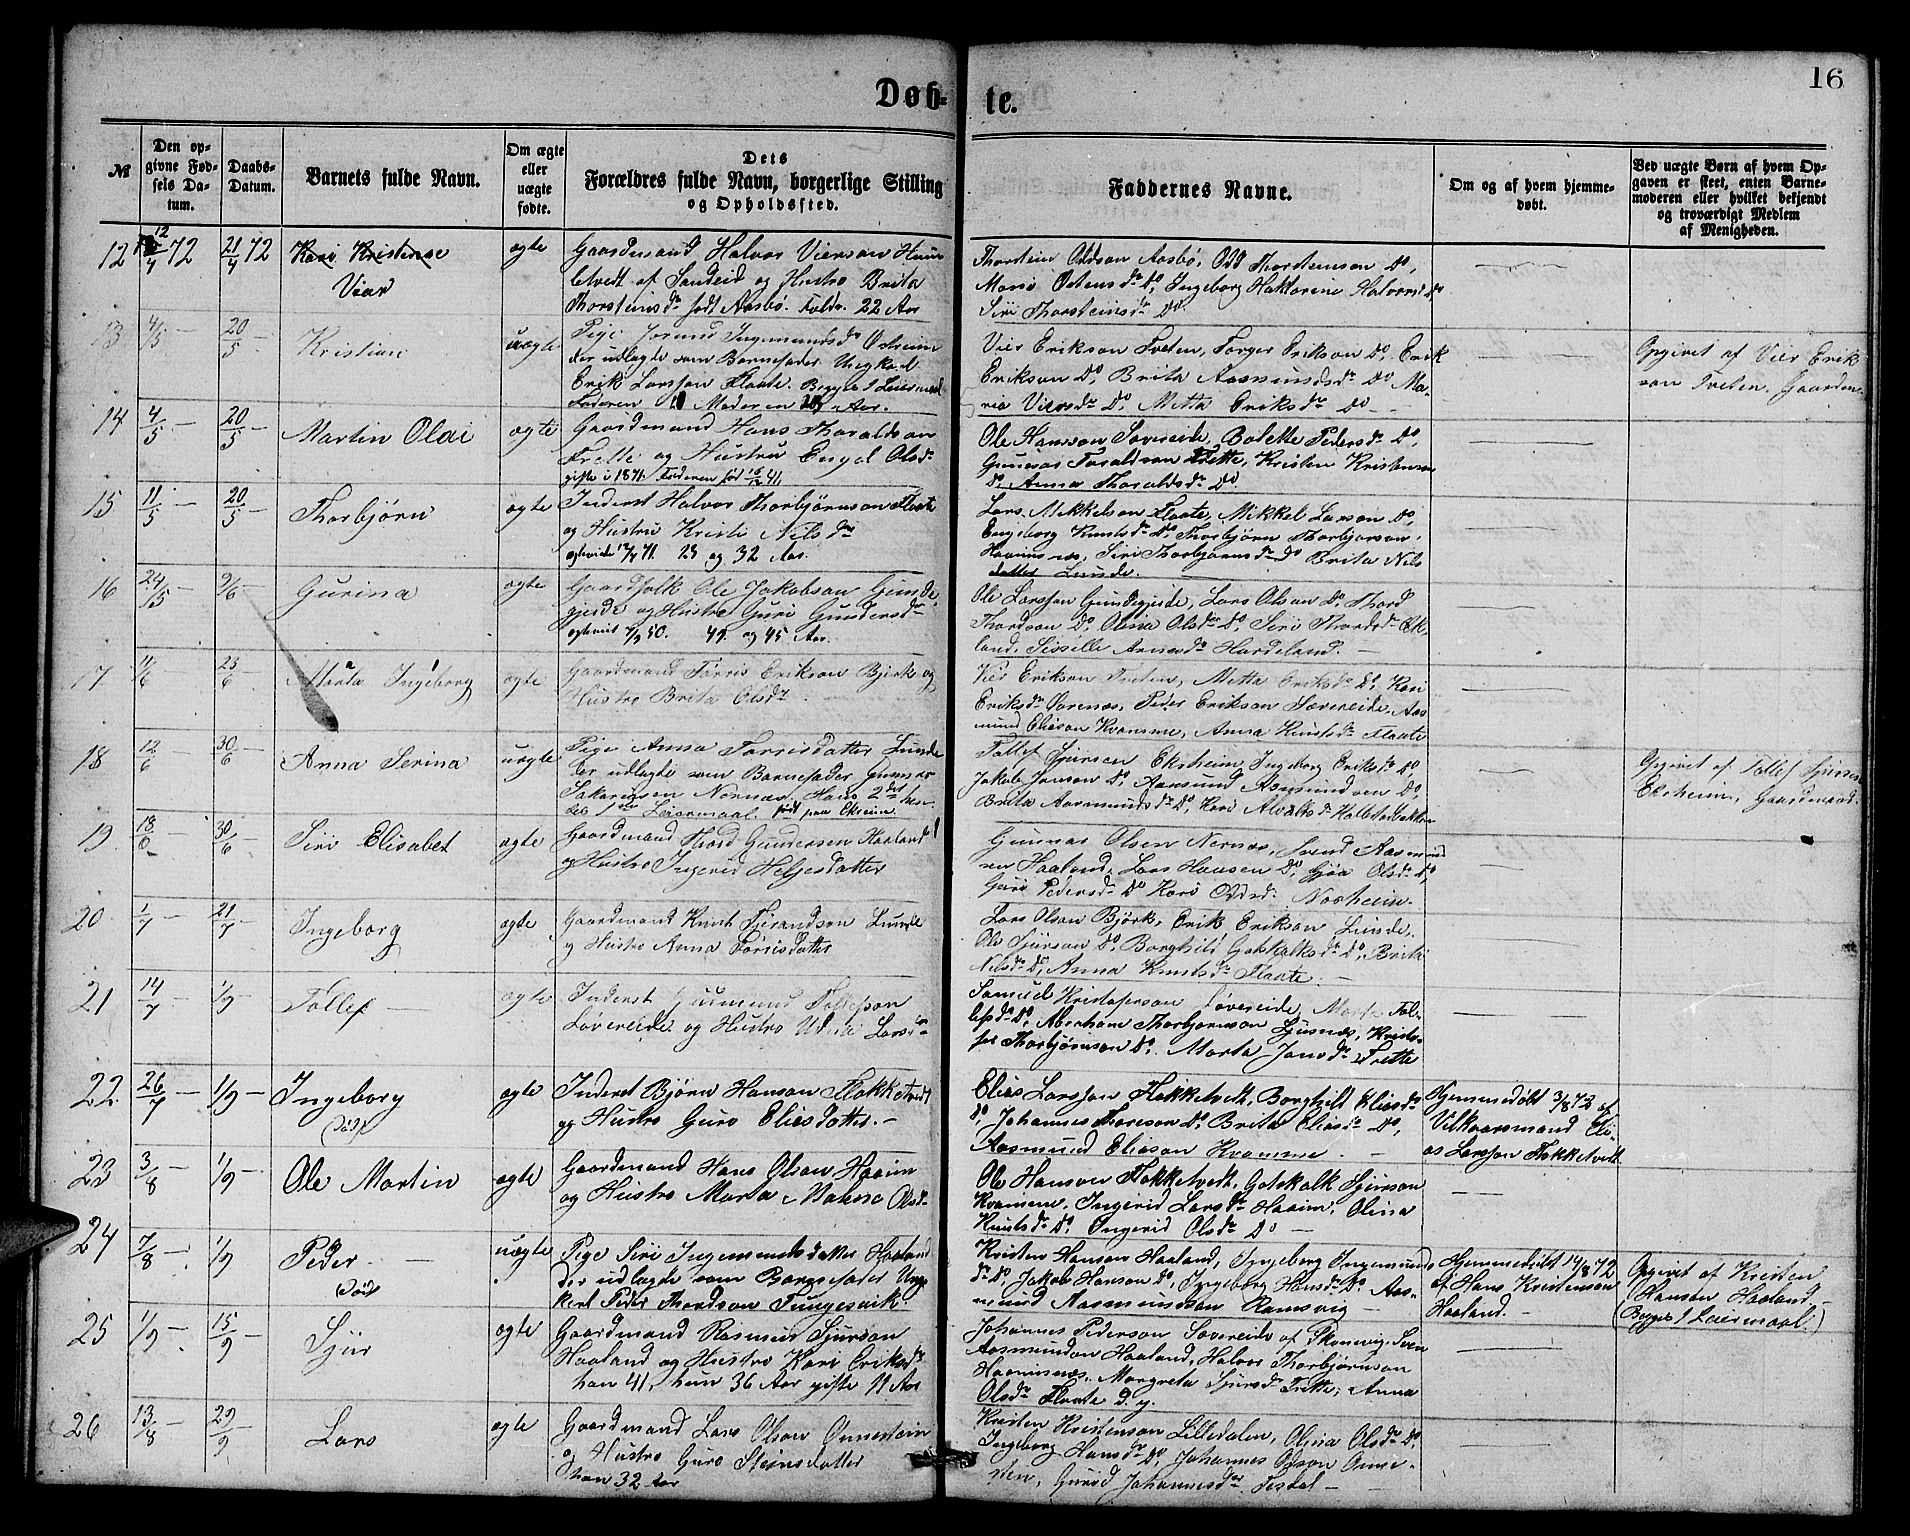 16
Døb-te.
№
Den opgivne Fødsels Datum.
Daabs-Datum.
Barnets fulde Navn.
Om ægte eller uægte fødte.
Dets Forældres fulde Navn, borgerlige Stilling og Opholdssted.
Faddernes Navne.
Om og af hvem hjemmedøbt.
Ved uægte Børn af hvem Opgaven er skeet, enten Barnemoderen eller hvilket bekjendt og troværdigt Medlem af Menigheden.
12 12/4 72 21/4 72 Kari Kristense ægte
Viar
Gaardmand Halvor Vierson
af Sandeid og Hustro Brita
Thorsteinsdr født Aasbø. 22 Aar
Thorstein Oddson Aasbø, Odd Thorsteinson Do,
Ostensdr Do, Ingeborg Halvorsd Do
Siri Thorsteinsdr Do
13 4/5 20/5 Kristian uægte
Pige Ingemundsdr Østreim
der udlagte som Barnefader Ungkarl
Erik Larsson Flaate. Begges 1 Leiermaal
Faderen Moderen Aar.
Vier Erikson Tveten, Torger Erikson Do, Erik
Erikson Do, Brita Aasmundsdr Do Ma-
ria Viersdr Do, Metta Eriksdr Do
Opgivet af Vier Erik
son Tveten, Gaardm
14 4/5 20/5 Martin Olai ægte
Gaardmand Hans Thoraldson
Frette og Hustru Engel Olsdr
gifte i 1871. Faderen fød 41
Ole Hansson Søvereide, Bolette Pedersdr Do,
Gunnar Toraldson Frette, Kristen Kristenson
Do, Anna Thoraldsdr Do
15 11/5 20/5 Thorbjørn ægte
Inderst Halvor Thorbjørnson Flaate
og Hustru Kristi Nilsdr
71. 23 og 32 Aar.
Lars Mikkelson Flaate, Mikkel Larson Do,
Engeborg Knutsdr Do, Thorbjørn Thorbjørson
Siri Thorbjørnsdr Do Brita Nils
datter Lunde.
16 24/5 9/6 Gurina ægte
Gaardfolk Ole Jakobson Gunde
gjerde og Hustro Guri Gundersdr
50. 49 og 45 Aar.
Ole Larsson Gundegjerde, Lars Olson Do, Thord
Thordson Do, Olina Olsdr Do, Siri Thordsdr Ek-
land, Sisselle Arnesdr Hardeland.
17 11/6 23/6 Marta Ingeborg ægte
Gaardmand Tørris Erikson Bjerk og
Hustro Brita Olsdr
Vier Erikson Tveten, Metta Eriksdr Do, Kari
Eriksdr Sørenes, Peder Erikson Søvereide, Aas
mund Eliason Kvamme, Anna Knutsdr Flaate
18 12/6 30/6 Anna Serina uægte
Pige Anna Tørrisdatter Lunde
der udlagte som Barnefader Gunnar
Sakariasen Nernæs, Hans 2det hen
des 1ste Leiermaal. født paa Ekreim.
Tollef Sjursen Eksheim, Ingeborg Eriksdr Do,
Jakob Jonson Do, Aasmund Asmundsen Do,
Brita Aasmundsdr Do, Kari
Opgivet af Tollef Sjursen
Eksheim, Gaardmand.
19 18/6 30/6 Siri Elisabet ægte
Gaardmand Thord Gundersen Haaland
og Hustro Ingerid Helgesdatter
Gunnar Olsen Nernæs, Svend Aasmund
sen Haaland, Lars Hansen Do, Gjøa Olsdr Do,
Guri Pedersdr Do Kari Norheim.
20 1/7 21/7 Ingeborg ægte
Gaardmand Knut Tjerandson Lunde
og Hustro Anna Tørrisdatter
Lars Olson Bjørk, Erik Erikson Lunde.
Ole Sjurson Do, Borghild Gotskalksdr Do, Brita
Nilsdr Do, Anna Knutsdr Flaate.
21 14/7 1/9 Tollef ægte
Inderst Gunmund Tollefson
Løvereide og Hustro Udna Larsdr
Samuel Kristoferson Løvereide, Marta Tol-
lefsdr Do, Abraham Thorbjørnson Sjusnæs, Kristo-
fer Thorbjørnson Do. Marta Jansdr Frette
22 26/7 1/9 Ingeborg ægte
(død)
Inderst Bjørn Hanson Flokketvedt
og Hustro Guro Eliasdatter.
Elias Larsson Flokketvedt, Borghild Eliasdr
Do, Johannes Thoreson Do, Brita Eliasdr Do,
Aasmund Eliason Kvamme.
Hjemmedøbt 3/8 72 af
Vilkaarsmand Eli-
as Larsson Flokketvedt
23 3/8 1/9 Ole Martin ægte
Gaardmand Hans Olson Haaim
og Hustro Marta Olsdr
Ole Hanson Flokketvedt, Gotskalk Sjurson
Kvamme, Ingerid Larsdr Haaim, Olina
Knutsdr Do, Ingerid Olsdr Do
24 7/8 1/9 Peder uægte
(død)
Pige Siri Ingemundsdatter Haaland
der udlagte som Barnefader Ung
karl Peder Thordson Tungesvik.
Kristen Hanson Haaland, Ingeborg Ingemunds
dr Do, Jakob Hanson Do, Ingeborg Hansdr Do. Aas-
mund Aasmundson Ramsvig
Hjemmedøbt 14/8 72
af Hans Kristenson
Haaland.
Opgivet af Kristen
Hansen Haaland
(Begges 1 Leiermaal.)
25 1/9 15/9 Sjur ægte
Gaardmand Rasmus Sjurson
Haaland og Hustro Kari Eriksdr
han 41, hun 36 Aar gifte 11 Aar
Johannes Pederson Søvereide af Skonevig, Sven
Aasmundson Haaland, Halvor Thorbjørnson
Margreta Sjursdr Frette, Anna
Olsdr Flaate
26 13/8 29/9 Lars ægte
Gaardmand Lars Olson Ønnestein
og Hustro Guro Steinsdatter
han 32 Aar
Kristen Kristenson Lilledalen, Olina Olsdr Do.
Ingeborg Hansdr Do, Johannes Olson Ønne-
sten, Gurid Johannesdr Tesdal